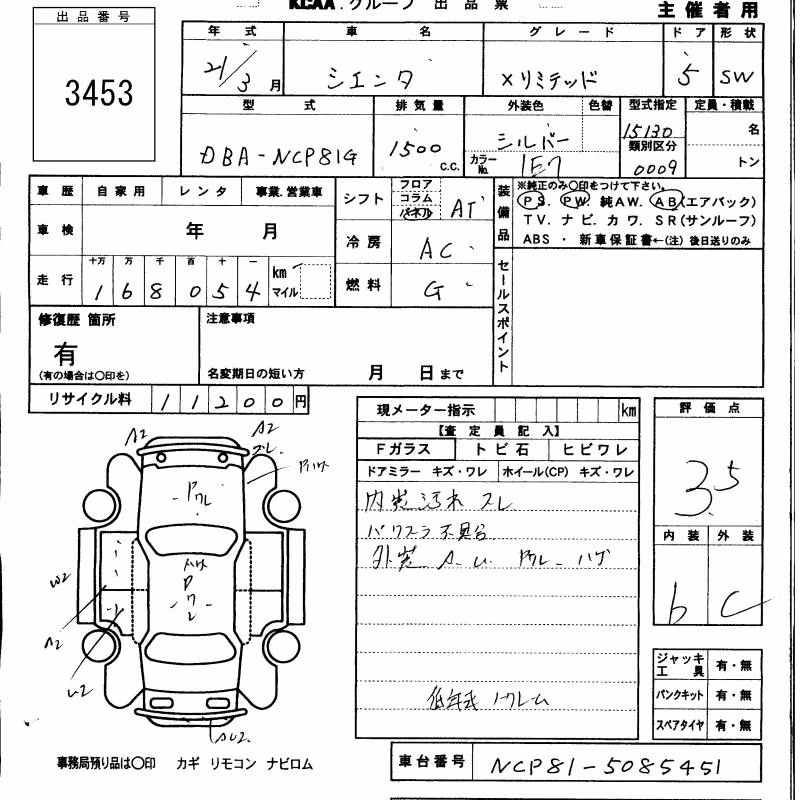 KCAA.グループ 出品票
主催者用
出品番号
3453
年式 車名 グレード ドア 形状
21/3月 シエンタ Xリミテッド 5 SW
型式 排気量 外装色 色替 型式指定 定員・積載
DBA-NCP81G 1500 C.C. シルバー 15130 名
カラーNo. 1E7 類別区分 0009 トン
車歴 自家用 レンタ 事業.営業車
車検 年 月
走行 十万 万 千 百 十 一
168054 km マイル
シフト フロア コラム パネル AT
冷房 AC
燃料 G
装備品
※純正のみ○印をつけて下さい。
PS. PW. 純AW. AB(エアバック)
TV. ナビ. カワ. SR(サンルーフ)
ABS ・ 新車保証書←(注) 後日送りのみ
セールスポイント
修復歴 箇所
有
(有の場合は○印を)
注意事項
名変期日の短い方 月 日まで
リサイクル料 11200円
現メーター指示 km
【査定員記入】
Fガラス トビ石 ヒビワレ
ドアミラー キズ・ワレ ホイール(CP) キズ・ワレ
内装汚れ スレ
パワスラ不具合
外装 A.U. Pワレ ハゲ
低年式
評価点
3.5
内装 外装
b C
ジャッキ 工具 有・無
パンクキット 有・無
スペアタイヤ 有・無
A2
A2
スレ
Pハゲ
Pワレ
Pワレ
W2
A2
U2
AU2
事務局預り品は○印 カギ リモコン ナビロム
車台番号 NCP81-5085451